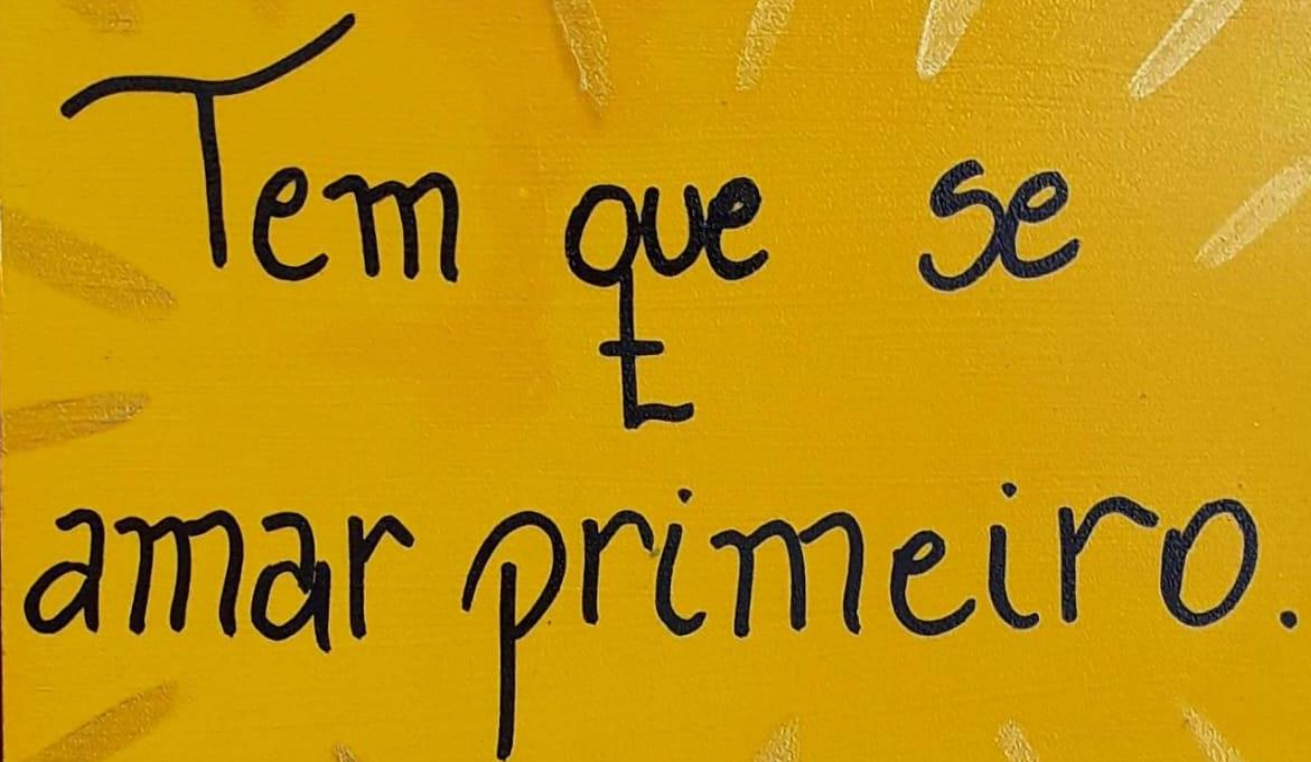 Tem que se
amar primeiro.